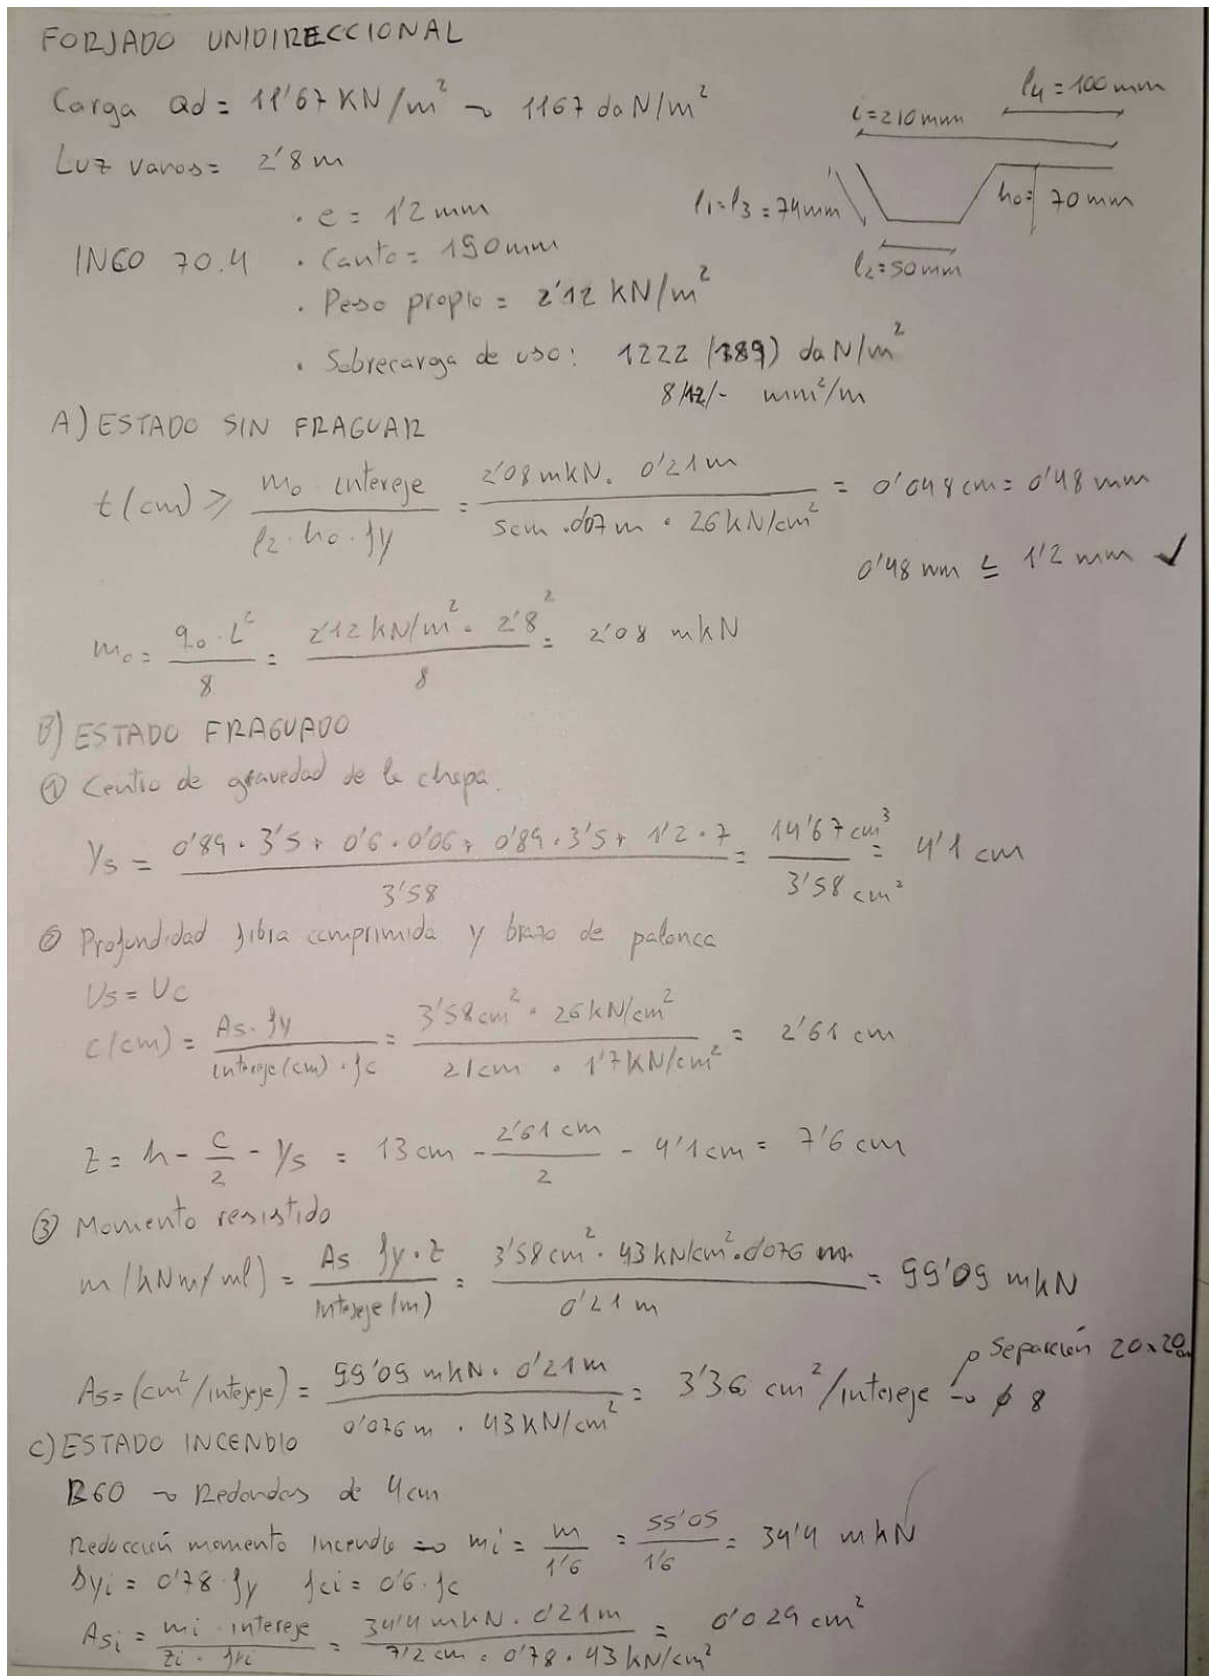 FORJADO UNIDIRECCIONAL
Carga Qd = 11'67 KN/m² → 1167 daN/m²
l4 = 100 mm
i = 210 mm
Luz vanos = 2'8 m
l1 = l3 = 74 mm
h0 = 70 mm
l2 = 50 mm
INCO 70.4
· e = 1'2 mm
· Canto = 190 mm
· Peso propio = 2'12 KN/m²
· Sobrecarga de uso: 1222 (789) daN/m²
8/12/- mm²/m
A) ESTADO SIN FRAGUAR
t (cm) ≥ m0 · intereje / l2 · h0 · fy = 2'08 mkN · 0'21 m / 5cm · 0'07 m · 26 kN/cm² = 0'048 cm = 0'48 mm
0'48 mm ≤ 1'2 mm ✓
m0 = q0 · L² / 8 = 2'12 kN/m² · 2'8² / 8 = 2'08 mkN
B) ESTADO FRAGUADO
① Centro de gravedad de la chapa.
Ys = 0'89 · 3'5 + 0'6 · 0'06 + 0'89 · 3'5 + 1'2 · 7 / 3'58 = 14'67 cm³ / 3'58 cm² = 4'1 cm
② Profundidad fibra comprimida y brazo de palanca
Us = Uc
c (cm) = As · fy / intereje (cm) · fc = 3'58 cm² · 26 kN/cm² / 21 cm · 1'7 kN/cm² = 2'61 cm
z = h - c/2 - Ys = 13 cm - 2'61 cm / 2 - 4'1 cm = 7'6 cm
③ Momento resistido
m (kNm/ml) = As · fy · z / Intereje (m) = 3'58 cm² · 43 kN/cm² · 0'076 m / 0'21 m = 55'05 mkN
As = (cm²/intereje) = 55'05 mkN · 0'21 m / 0'076 m · 43 kN/cm² = 3'36 cm²/intereje → ø 8
Separación 20x20 cm
C) ESTADO INCENDIO
R60 → Redondos de 4 cm
Reducción momento Incendio → mi = m / 1'6 = 55'05 / 1'6 = 34'4 mkN
fyi = 0'78 · fy fci = 0'6 · fc
Asi = mi · intereje / zi · fyi = 34'4 mkN · 0'21 m / 7'2 cm · 0'78 · 43 kN/cm² = 0'029 cm²